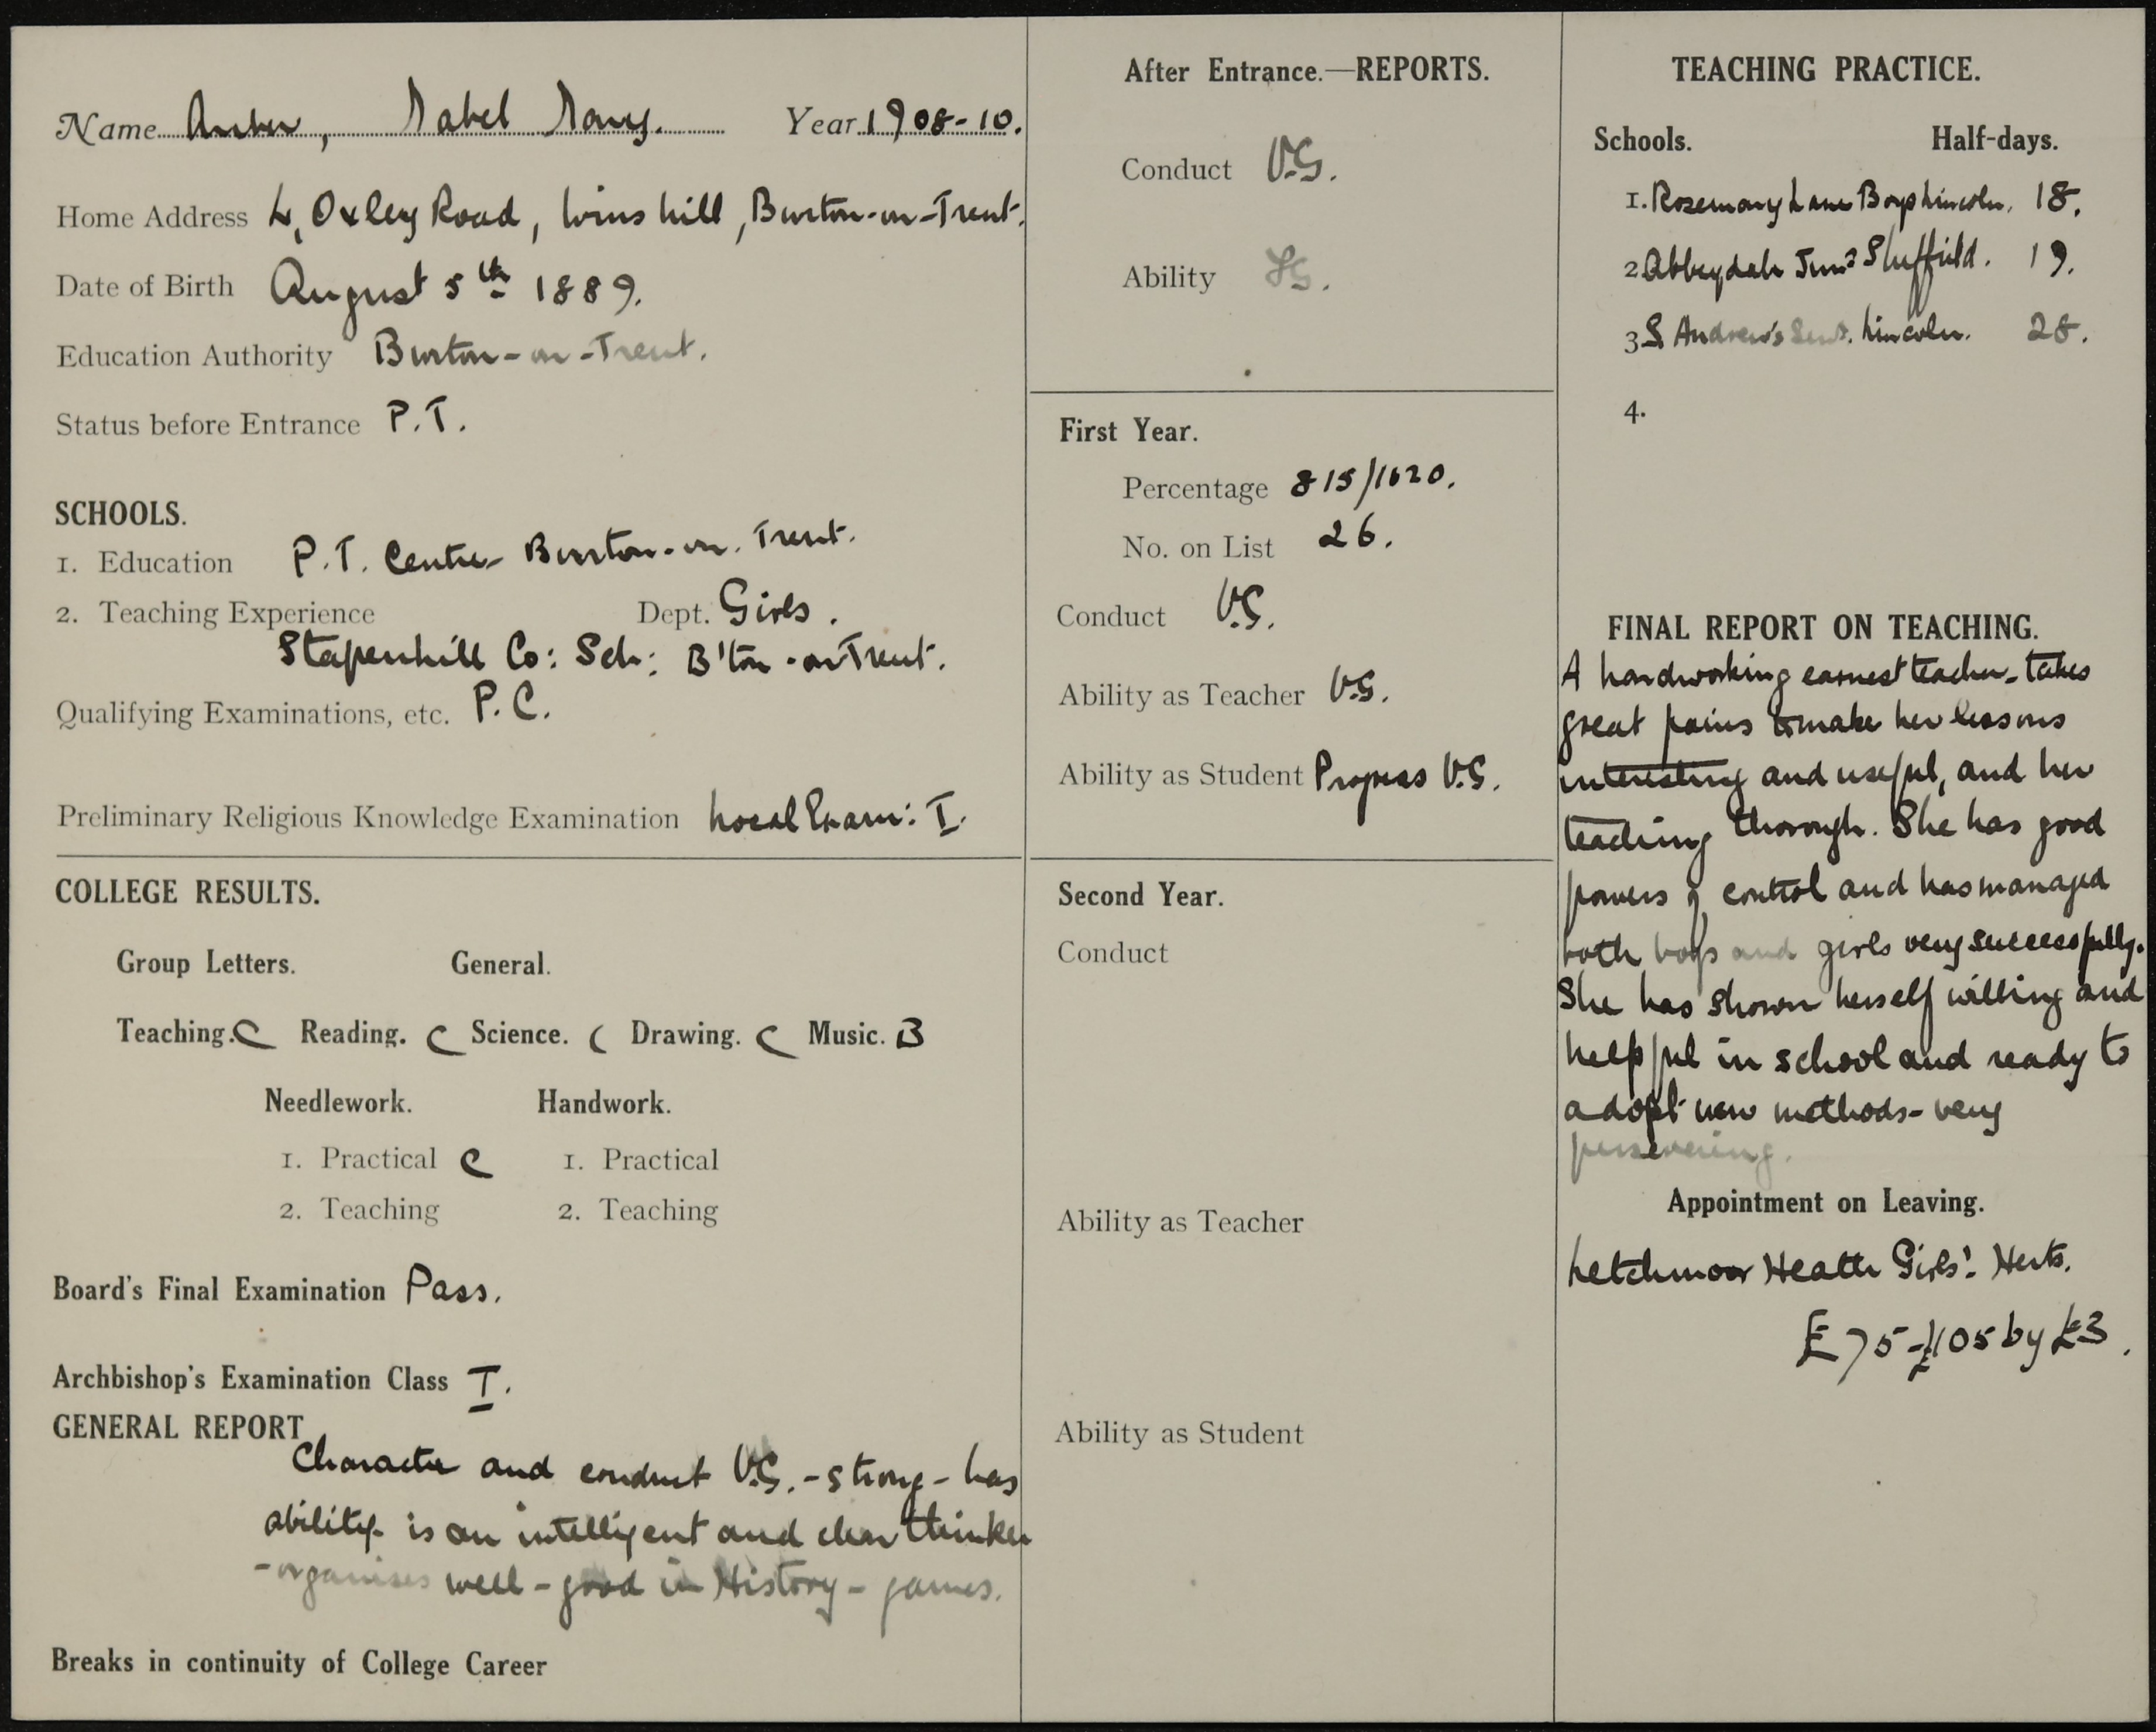 Name Amber, Mabel Mary. Year 1908-10.
Home Address 4, Oxley Road, Winshill, Burton-on-Trent.
Date of Birth August 5th 1889.
Education Authority Burton-on-Trent.
Status before Entrance P.T.
SCHOOLS.
1. Education P.T. Centre Burton-on-Trent.
2. Teaching Experience Dept. Girls.
Stapenhill Co: Sch: B'ton-on-Trent.
Qualifying Examinations, etc. P.C.
Preliminary Religious Knowledge Examination Local Exam: I.
COLLEGE RESULTS.
Group Letters. General.
Teaching. C Reading. C Science. C Drawing. C Music. B
Needlework. Handwork.
1. Practical C 1. Practical
2. Teaching 2. Teaching
Board's Final Examination Pass.
Archbishop's Examination Class I.
GENERAL REPORT
Character and conduct V.G. - strong - has
ability. is an intelligent and clear thinker
- organises well - good in History - games.
Breaks in continuity of College Career
After Entrance.—REPORTS.
Conduct V.G.
Ability
First Year.
Percentage 815/1620.
No. on List 26.
Conduct V.G.
Ability as Teacher V.G.
Ability as Student Progress V.G.
Second Year.
Conduct
Ability as Teacher
Ability as Student
TEACHING PRACTICE.
Schools. Half-days.
1. Rosemary Lane Boys Lincoln. 18.
2. Abbeydale Junr Sheffield. 19.
3. S Andrew's Lincoln. 28.
4.
FINAL REPORT ON TEACHING.
A hardworking earnest teacher - takes
great pains to make her lessons
interesting and useful, and her
teaching thorough. She has good
powers of control and has managed
both boys and girls very successfully.
She has shown herself willing and
helpful in school and ready to
adopt new methods - very
persevering.
Appointment on Leaving.
Letchmoor Heath Girls'. Herts.
£75-£105 by £3.